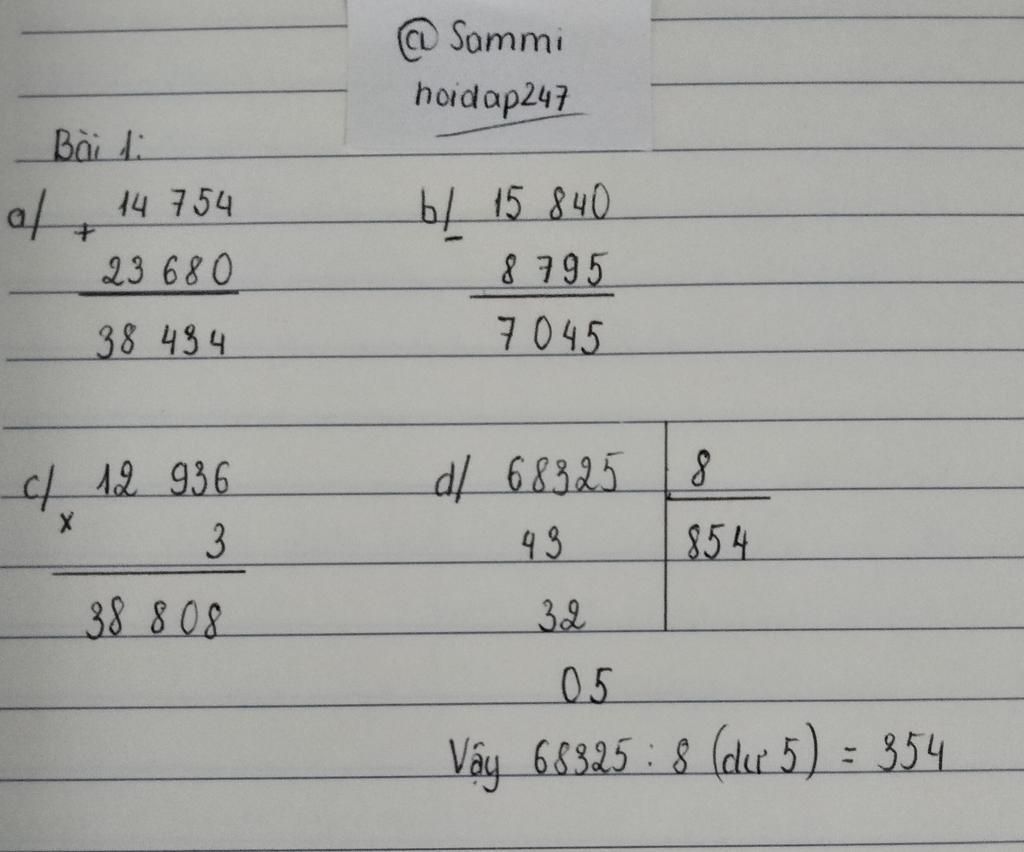 @ Sammi
hoidap247
Bài 1:
a/ + 14 754
23 680
38 434
b/ - 15 840
8 795
7 045
c/ x 12 936
3
38 808
d/ 68325 8
43 854
32
05
Vậy 68325 : 8 (dư 5) = 354